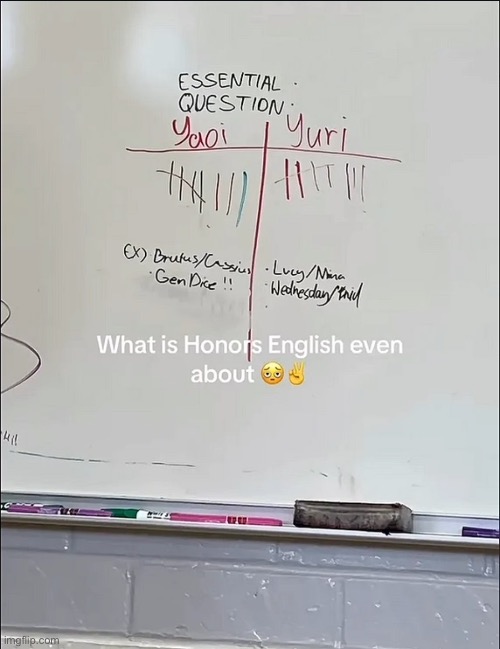 ESSENTIAL
QUESTION:
Yaoi Yuri
EX) Brutus/Cassius
· Gen Dice !!
· Lucy/Mina
Wednesday/Enid
What is Honors English even
about 😔✌️
imgflip.com